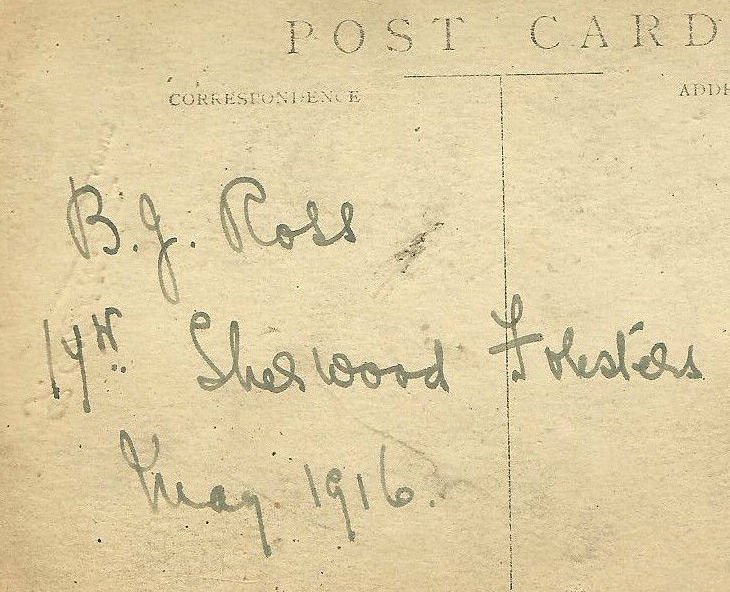 POST CARD
CORRESPONDENCE
B. J. Ross
17th Sherwood Foresters
May 1916.